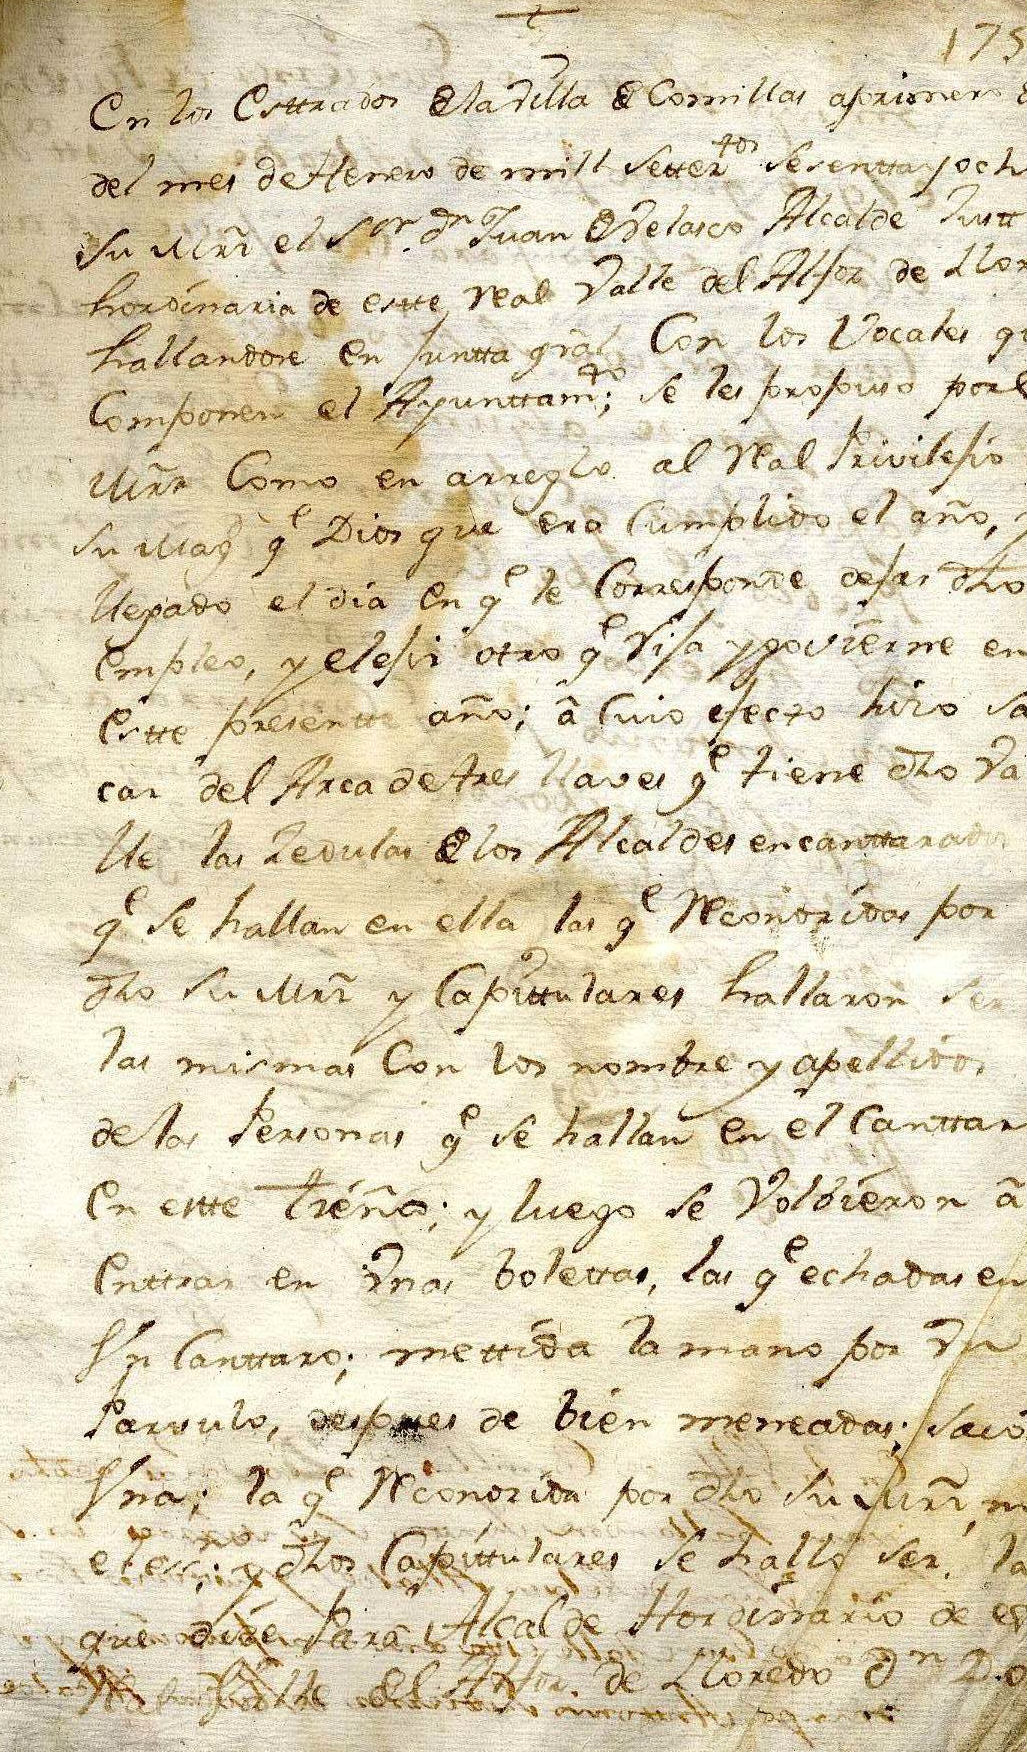 175
En los Esttrados de la Villa de Comillas a primero
del mes de Henero de mill settez.tos sesentta y och
su Mrd el S.or d.n Juan de Velasco Alcalde Justt
hordinaria de estte Real Valle del Alfoz de Llor
hallandose en juntta gral Con los Vocales q
Componen el Ayunttam.to; se les propuso por
Mrd Como en arreglo al Real Privilejio
su Mag.d q.e Dios gue era Cumplido el año, y
llegado el dia en q.e le Corresponde dejar dho
empleo, y elejir otro q.e Rija y govierne en
estte presentte año; â Cuio efecto hizo sa
car del Arca de tres llaves q.e tiene dho Va
lle las Zedulas de los Alcaldes encanttarados
q.e se hallan en ella las q.e Reconozidas por
dho su Mrd y Capittulares hallaron ser
las mismas Con los nombre y apellidos
de las Personas q.e se hallan en el Canttar
en estte trienio; y luego se Volbieron â
enttrar en Vnas bolettas, las q.e echadas en
Vn Canttaro; mettida la mano por Vn
Parvulo, despues de bien meneadas; sacó
Vna; la q.e Reconozida por dho su Mrd,
el ess.no; y dhos Capittulares se halló ser, la
que dize Para Alcalde Hordinario de es
Valle del Alfoz de Lloredo d.n